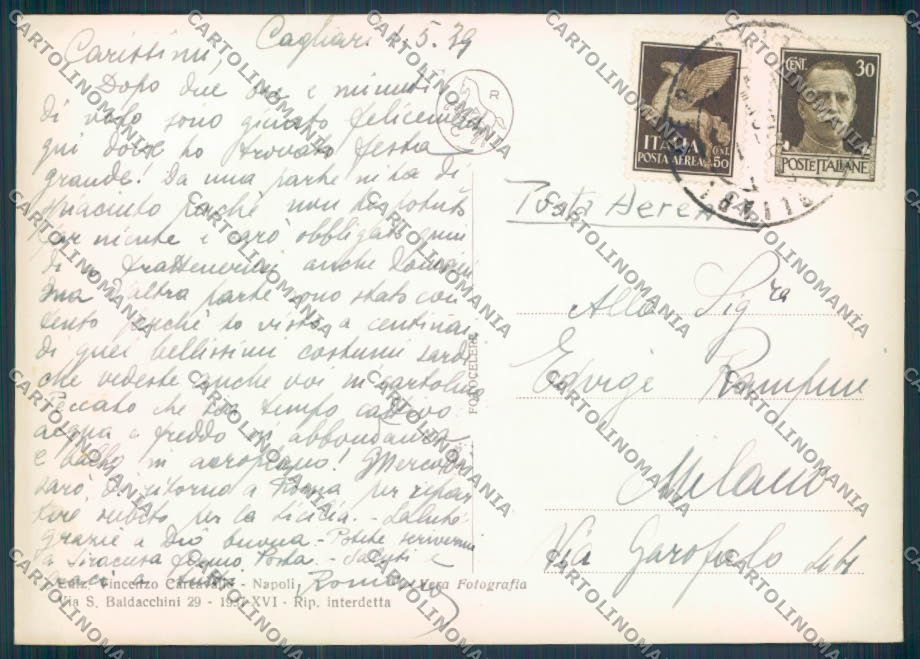 Cagliari 1.5.39
Carissimi,
Dopo due ore e minuti
di volo sono giunto felicemente
qui dove ho trovato festa
grande! Da una parte mi ha
perché non ho potuto
far niente e sarò obbligato quin
di a trattenermi anche domani
ma d'altra parte sono stato con
tento perché ho visto a centinaia
di quei bellissimi costumi sardi
che vedeste anche voi in cartolina
Peccato che tempo cattivo
acqua e freddo in abbondanza
e ballo in aeroplano! Mercoledì
sarò di ritorno a Roma per ripar
tire subito per la Sicilia. - Salute
grazie a Dio buona - Potete scrivermi
a Siracusa Fermo Posta - Saluti e
baci a tutti Romano
Ediz. Vincenzo Carcavallo - Napoli
Vera Fotografia
Via S. Baldacchini 29 - 1937-XVI - Rip. interdetta
FOTOCELERE
R
ITALIA
POSTA AEREA
CENT. 50
CENT. 30
POSTE ITALIANE
CAGLIARI
Posta Aerea
Alla Sigra
Edvige Rampini
Milano
Via Garofalo
CARTOLINOMANIA